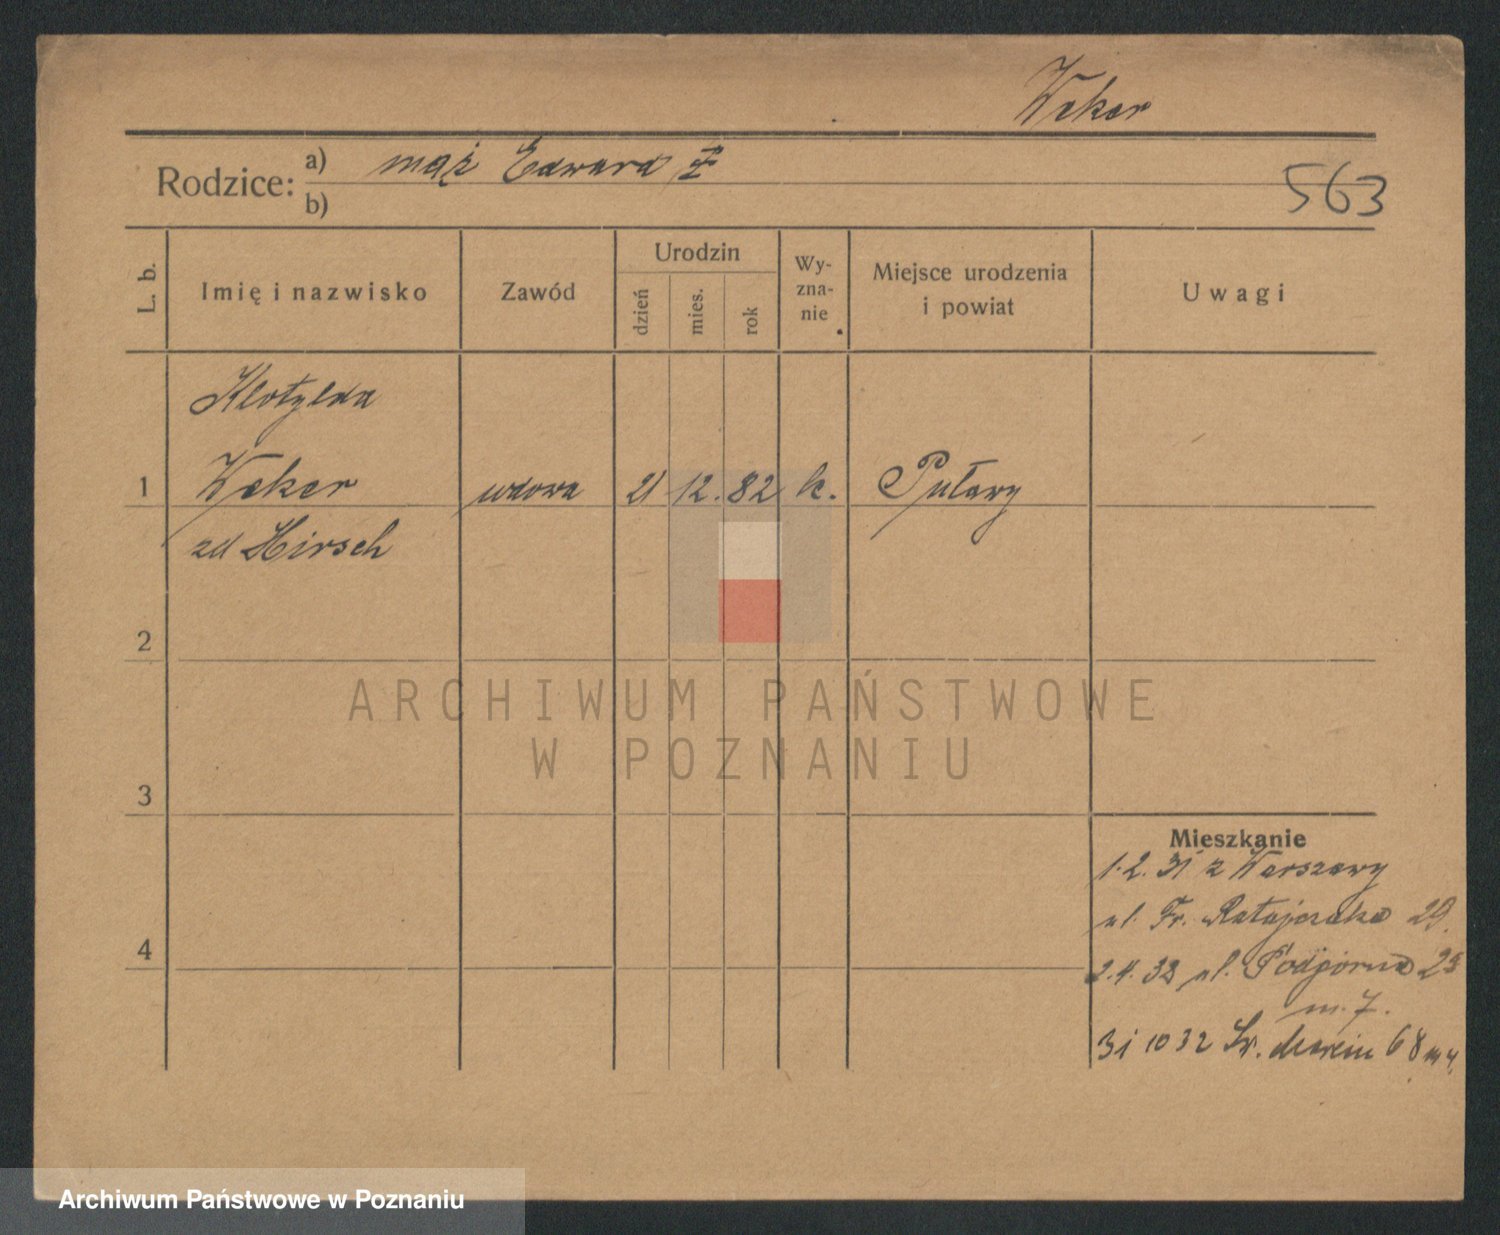 Weker
Rodzice: a) mąż Edward ‡
b)
563
L. b.
Imię i nazwisko
Zawód
Urodzin
dzień
mies.
rok
Wy-
zna-
nie
Miejsce urodzenia
i powiat
Uwagi
Klotylda
1 Weker wdowa 21 12. 82 k. Puławy
zd Hirsch
2
ARCHIWUM PAŃSTWOWE
W POZNANIU
3
Mieszkanie
1.2.31 z Warszawy
ul. Fr. Ratajczaka 29.
4
2.4.32 ul. Podgórna
m. 7.
31 10 32 Św. Marcin 68 m 4.
Archiwum Państwowe w Poznaniu